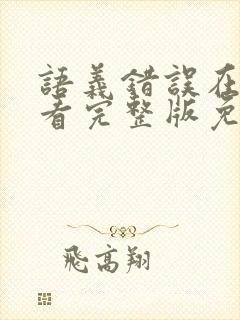 語義錯誤在
看完整版免
飛高翔